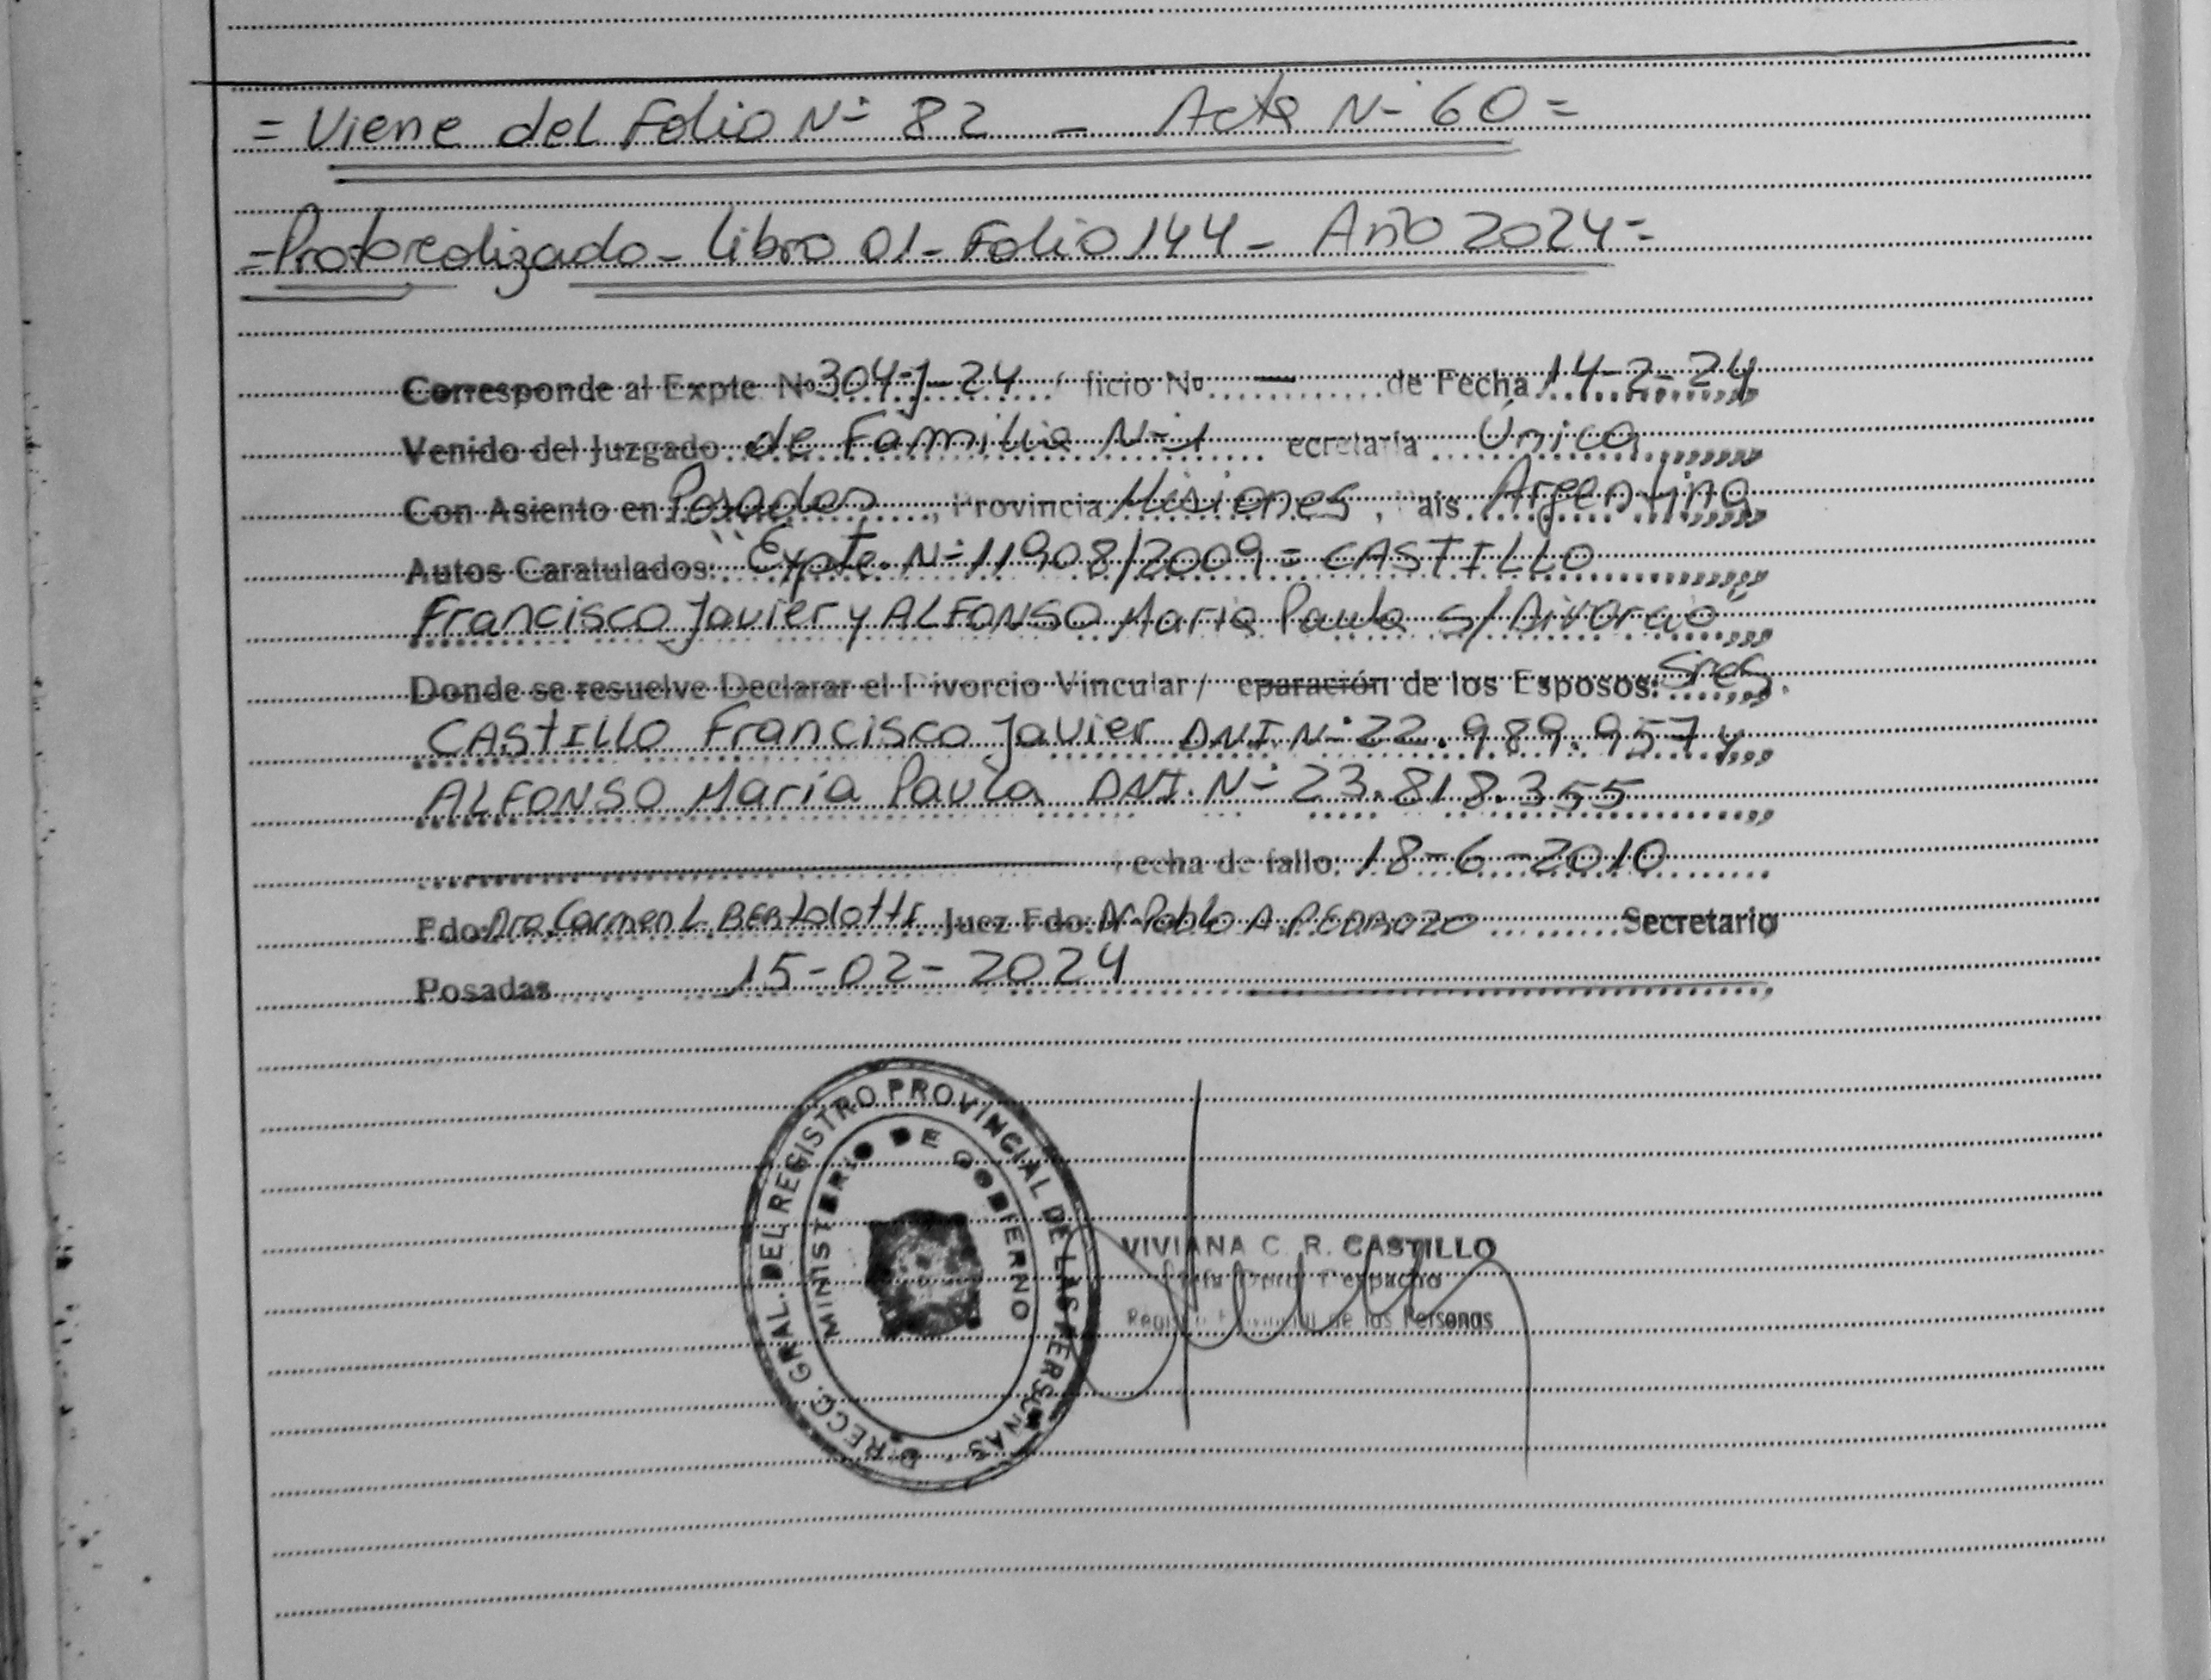 = Viene del Folio Nº 82 - Acta Nº 60 =
- Protocolizado - Libro 01 - Folio 144 - Año 2024 =
Corresponde al Expte Nº 304-J-24 / ficio Nº — de Fecha 14-2-24
Venido del Juzgado de Familia Nº 1 ecretaria Única
Con Asiento en Posadas, Provincia Misiones, ais Argentina
Autos Caratulados: "Expte. Nº 11908/2009 = CASTILLO
Francisco Javier y ALFONSO Maria Paula s/Divorcio"
Donde se resuelve Declarar el Divorcio Vincular / eparación de los Esposos: Sres.
CASTILLO Francisco Javier DNI. Nº 22.989.957 y
ALFONSO María Paula DNI. Nº 23.818.355
echa de fallo: 18-6-2010
Fdo: Dra. Carmen L. BERtolotti Juez Fdo: Pablo A. PEDROZO Secretario
Posadas 15-02-2024
DIRECC. GRAL. DEL REGISTRO PROVINCIAL DE LAS PERSONAS
MINISTERIO DE GOBIERNO
VIVIANA C. R. CASTILLO
Despacho
Registro Provincial de las Personas